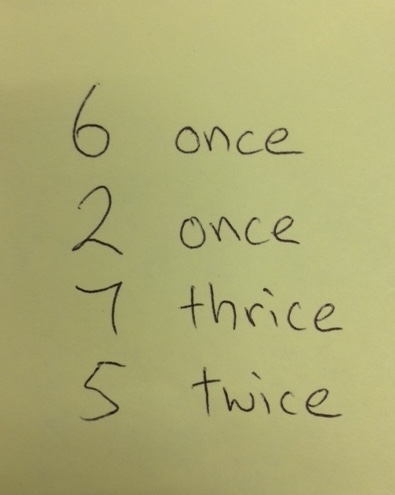 6 once
2 once
7 thrice
5 twice